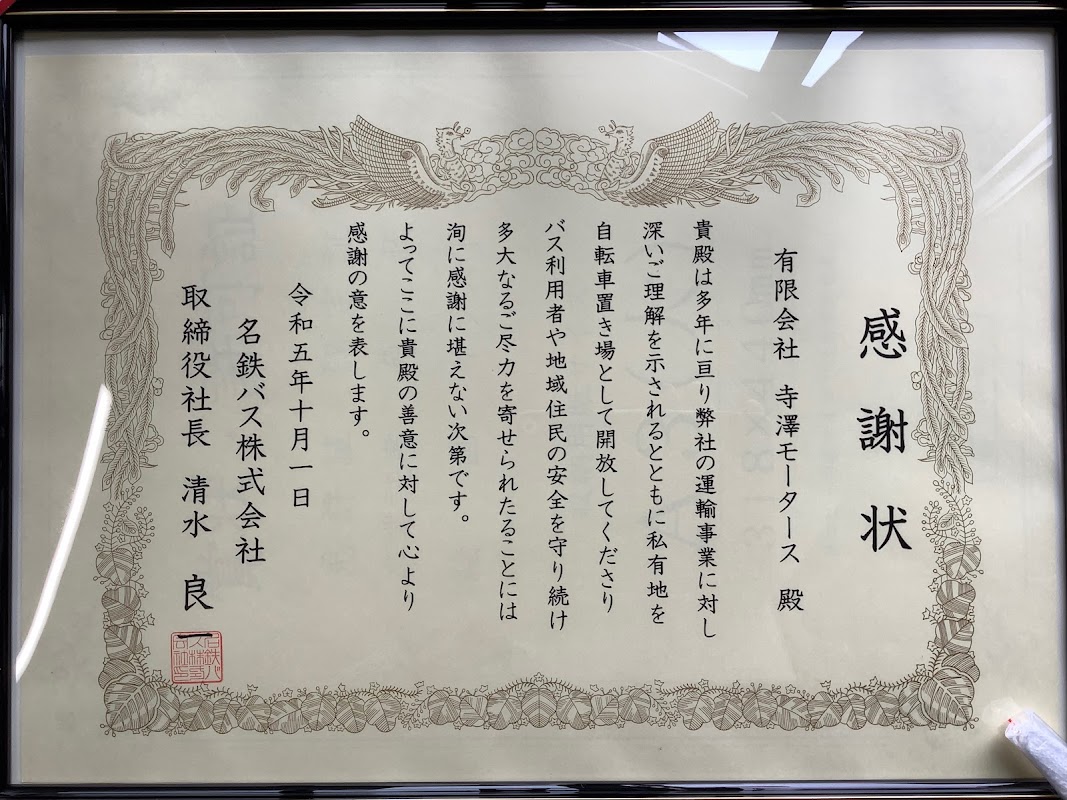 感謝状
有限会社 寺澤モータース 殿
貴殿は多年に亘り弊社の運輸事業に対し
深いご理解を示されるとともに私有地を
自転車置き場として開放してくださり
バス利用者や地域住民の安全を守り続け
多大なるご尽力を寄せられたることには
洵に感謝に堪えない次第です。
よってここに貴殿の善意に対して心より
感謝の意を表します。
令和五年十月一日
名鉄バス株式会社
取締役社長 清水 良一